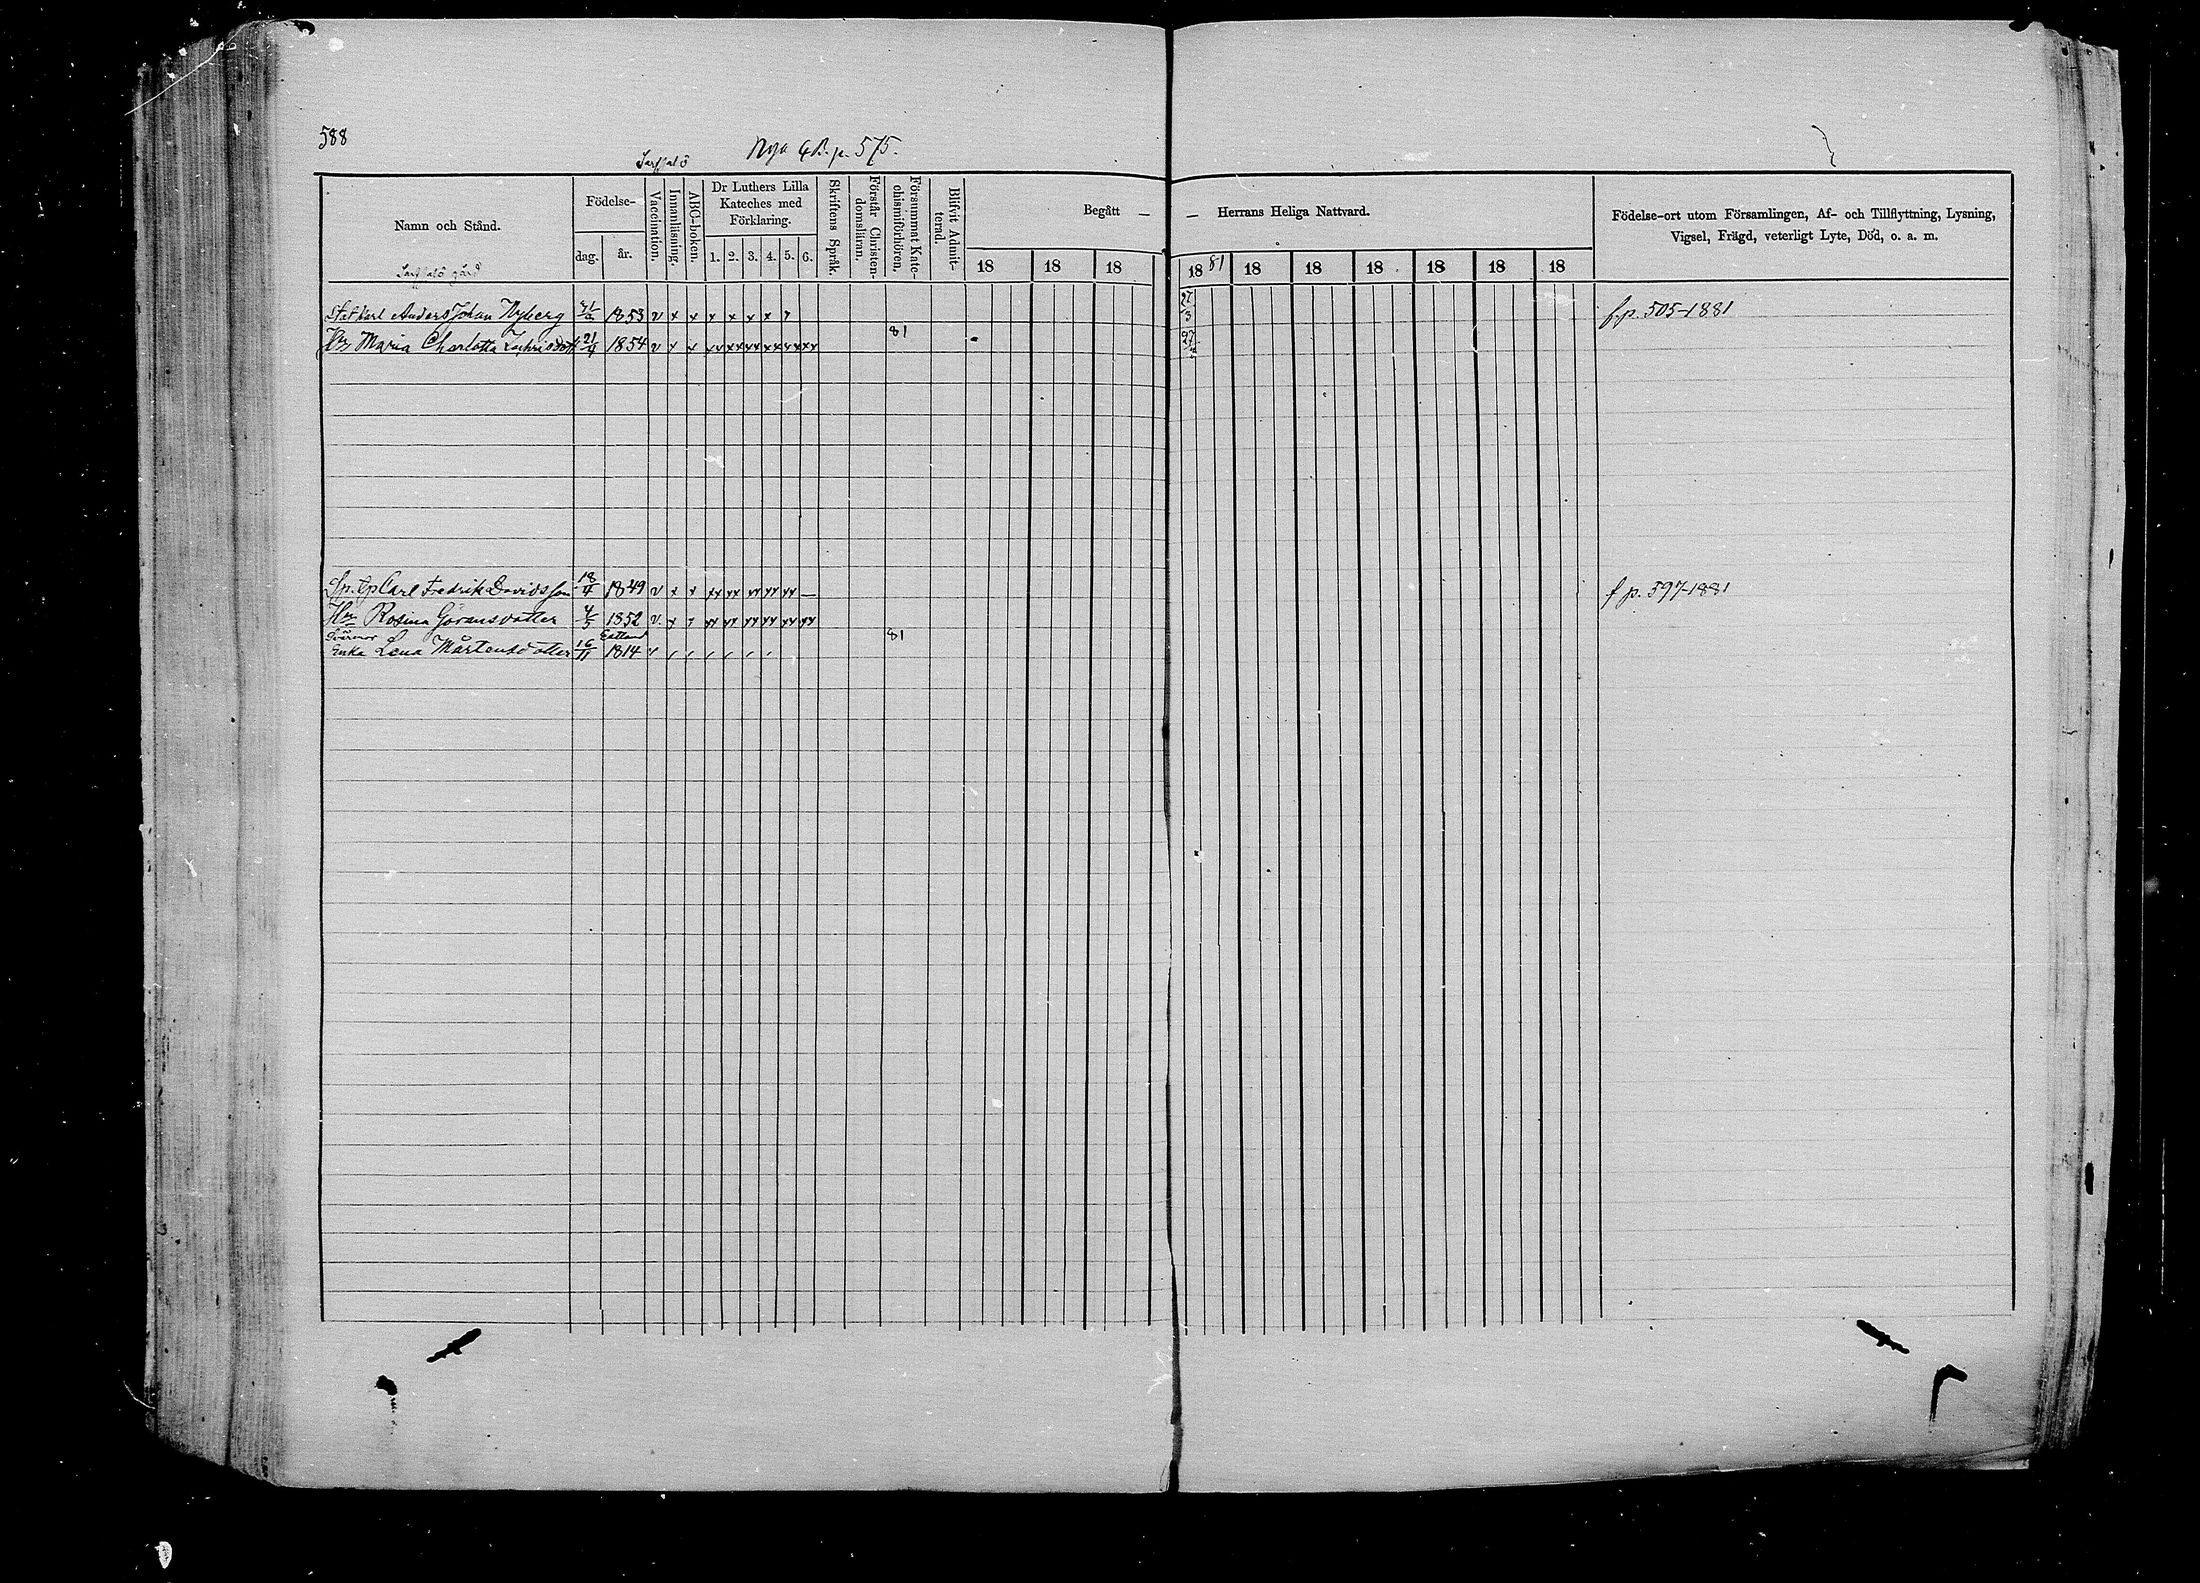 588
Nya q B. p. 575.
Sarfsalö
Namn och Stånd.
Födelse-
dag.
år.
Vaccination.
Innanläsning.
ABC-boken.
Dr Luthers Lilla
Kateches med
Förklaring.
1. 2. 3. 4. 5. 6.
Skriftens Språk.
Förstår Christen-
domsläran.
Försummat Kate-
chismiförhören.
Blifvit Admit-
terad.
Begått —
— Herrans Heliga Nattvard.
18 18 18 1881 18 18 18 18 18 18
Födelse-ort utom Församlingen, Af- och Tillflyttning, Lysning,
Vigsel, Frägd, veterligt Lyte, Död, o. a. m.
Sarfsalö gård
Anders Johan Nyberg 1853 v x x x x x x x 27/3 f. p. 505-1881
Hu Maria Charlotta 21/4 1854 v x x xx xx xx xx xx xx 81 27/3
Carl Fredrik Davidsson 18/4 1849 v x x xx xx xx xx xx — f p. 597-1881
Hu Rosina Göransdotter 4/5 1852 v. x x xx xx xx xx xx xx
Svärmor Estland 81
Enka Lena Mårtensdotter 16/11 1814 v